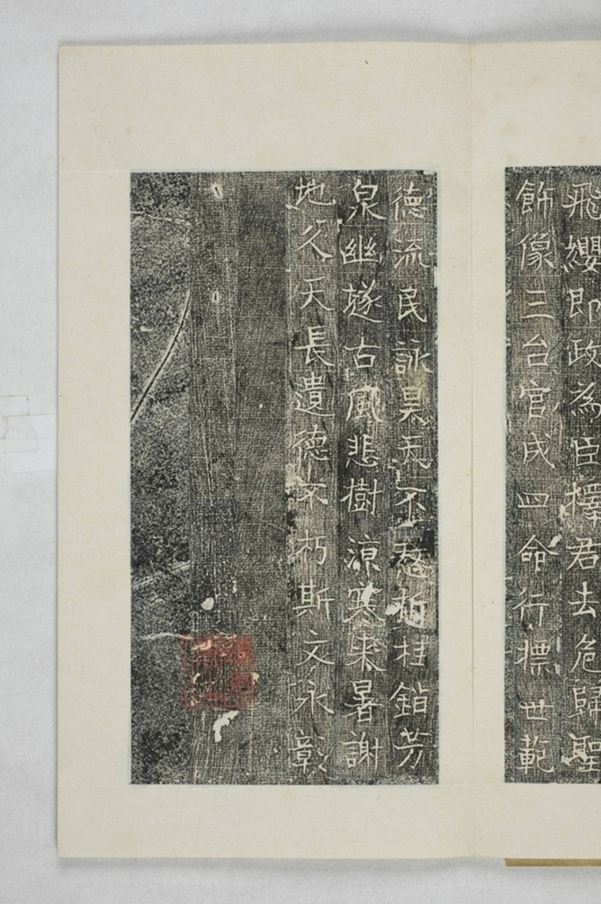 飛纓即政為臣擇君去危歸聖
飾像三台官成四命行標世範
德流民詠昊天不憖折桂銷芳
泉幽墜古風悲樹涼寒來暑謝
地久天長遺德不朽斯文永彰